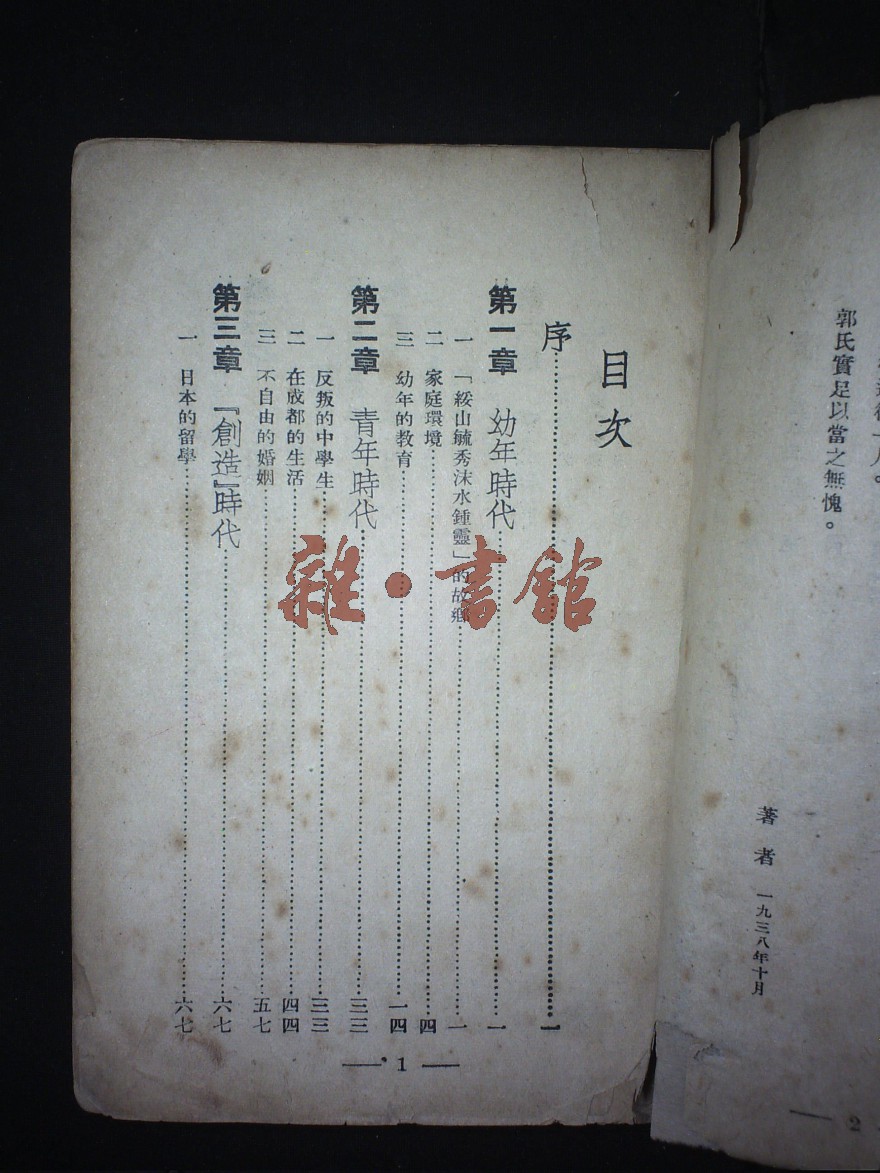 郭氏實足以當之無愧。
著者 一九三八年十月
2
目次
序 一
第一章 幼年時代 一
一 「綏山毓秀沫水鍾靈」的故鄉 一
二 家庭環境 四
三 幼年的教育 一四
第二章 青年時代 三三
一 反叛的中學生 三三
二 在成都的生活 四四
三 不自由的婚姻 五七
第三章 『創造』時代 六七
一 日本的留學 六七
1
雜·書館